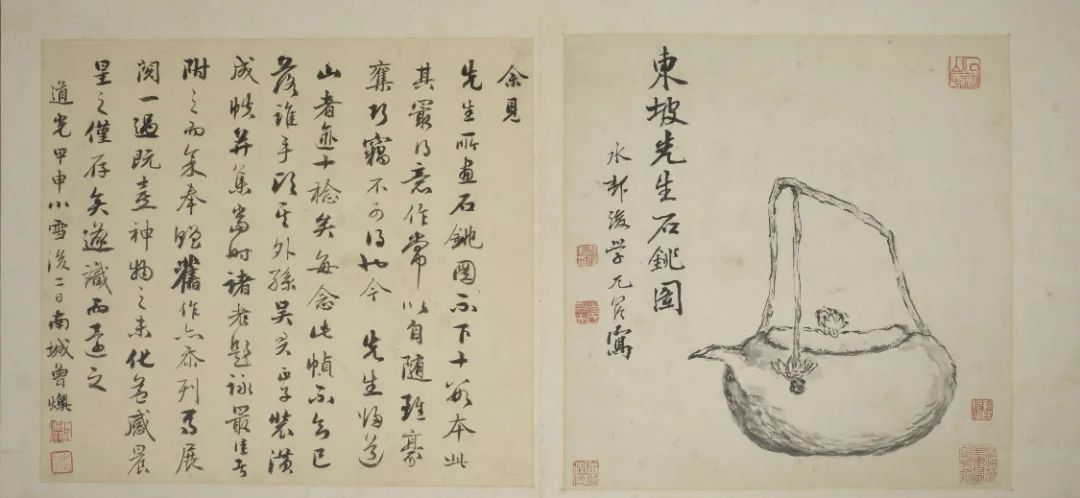 東坡先生石銚圖
水邨後學尤蔭寫
余見
先生所畫石銚圖不下十數本此
其最得意作常以自隨雖豪
奪巧竊不可得也今 先生歸道
山者逾十稔矣每念此幀不知已
落誰手頃其外孫吳君 裝潢
成帙并集當時諸老題詠最佳者
附之而余奉贈舊作亦忝列焉展
閱一過既喜神物之未化益感晨
星之僅存矣遂識而還之
道光甲申小雪後二日南城曾燠